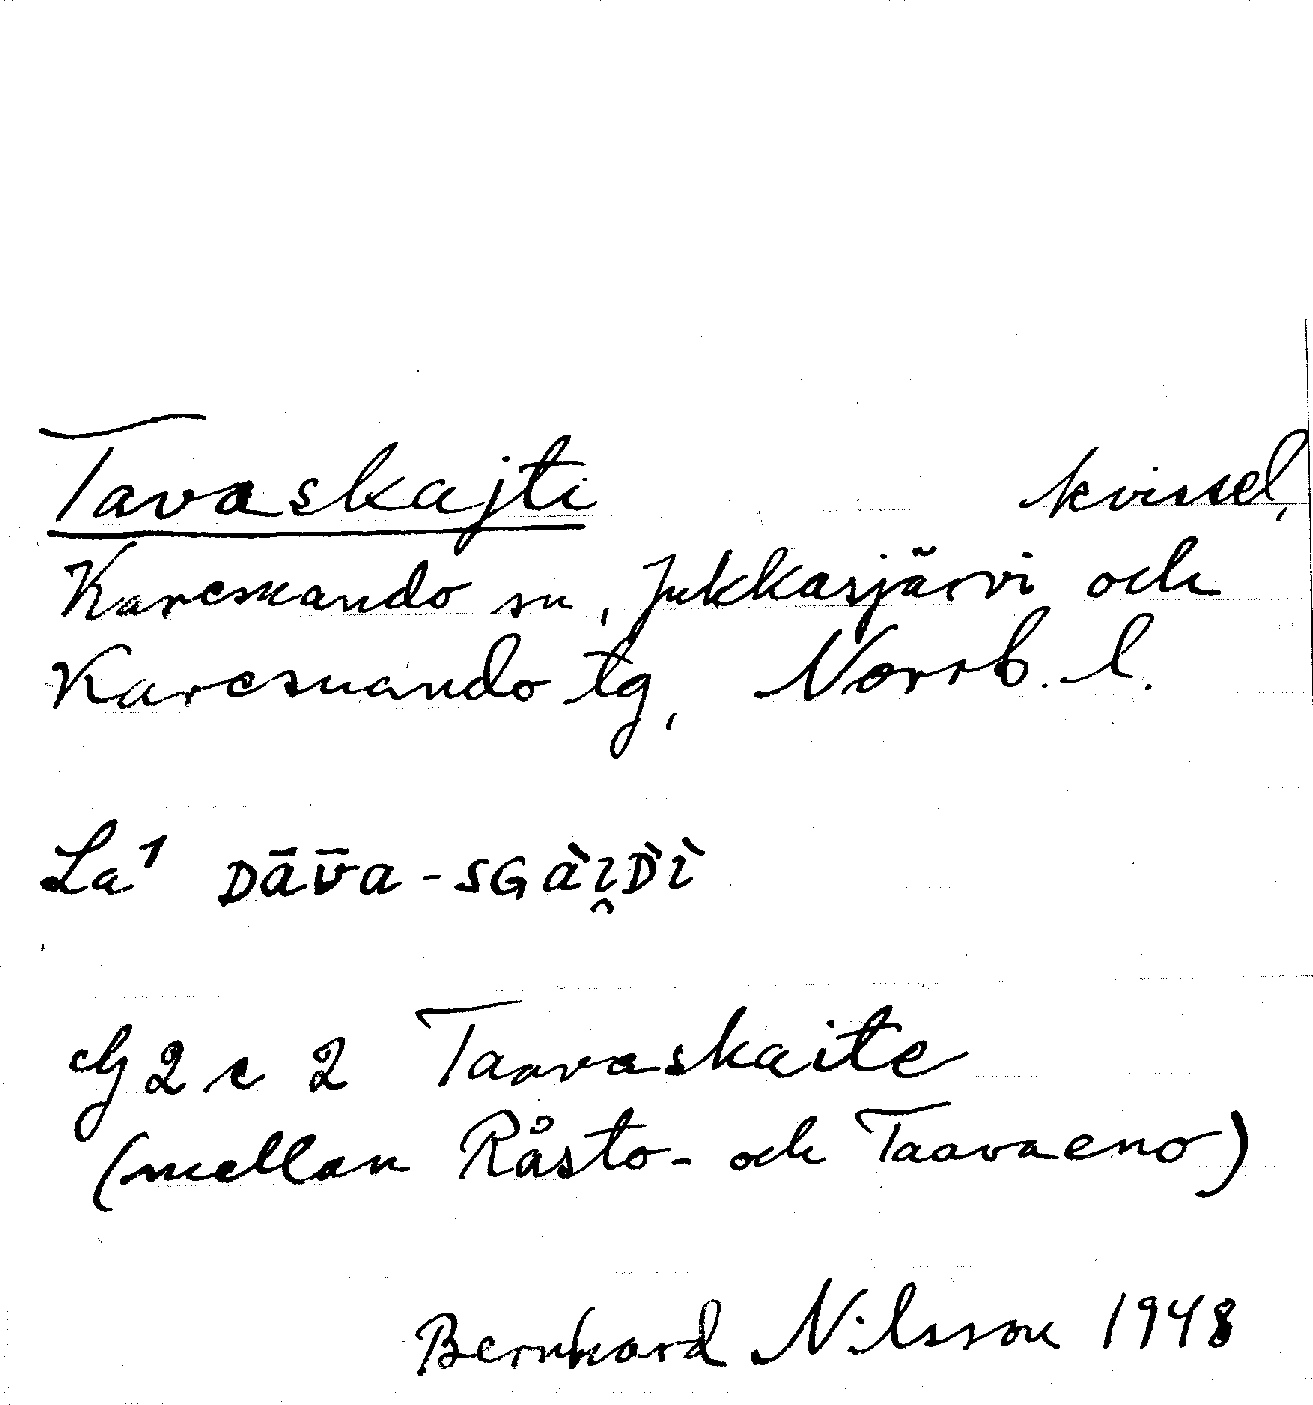 Tavaskajti kvissel,
Karesuando sn, Jukkasjärvi och
Karesuando tg, Norrb. l.
La¹ ᴅāv̄a-sɢài̯ᴅ̀ì
G 2 c 2 Taavaskaite
(mellan Råsto- och Taavaeno)
Bernhard Nilsson 1948